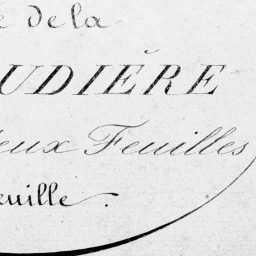 de la
UDIÈRE
eux Feuilles
euille.